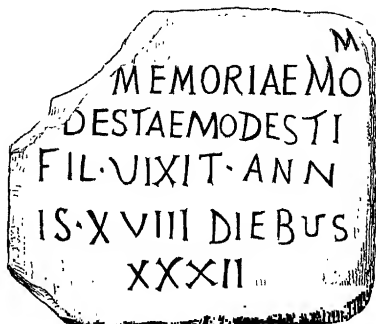 M
MEMORIAE MO
DESTAE MODESTI
FIL·VIXIT·ANN
IS·XVIII DIEBUS
XXXII